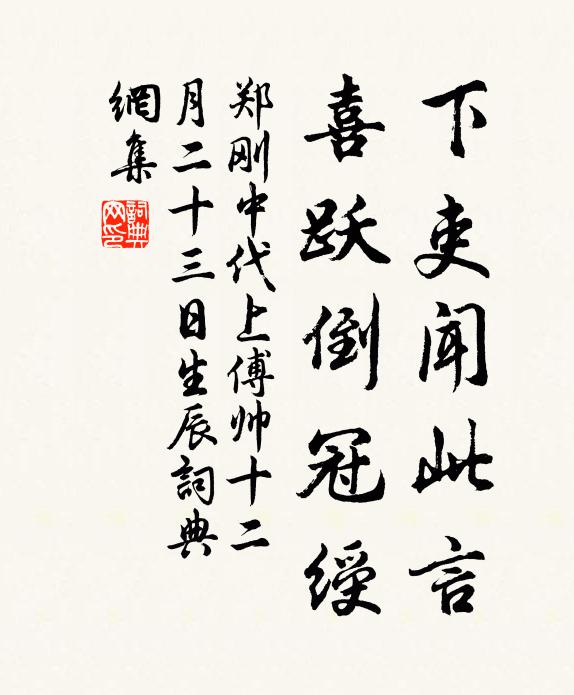 下吏闻此言
喜跃倒冠绶
郑刚中代上傅帅十二
月二十三日生辰詞典
網集
詞典
网印